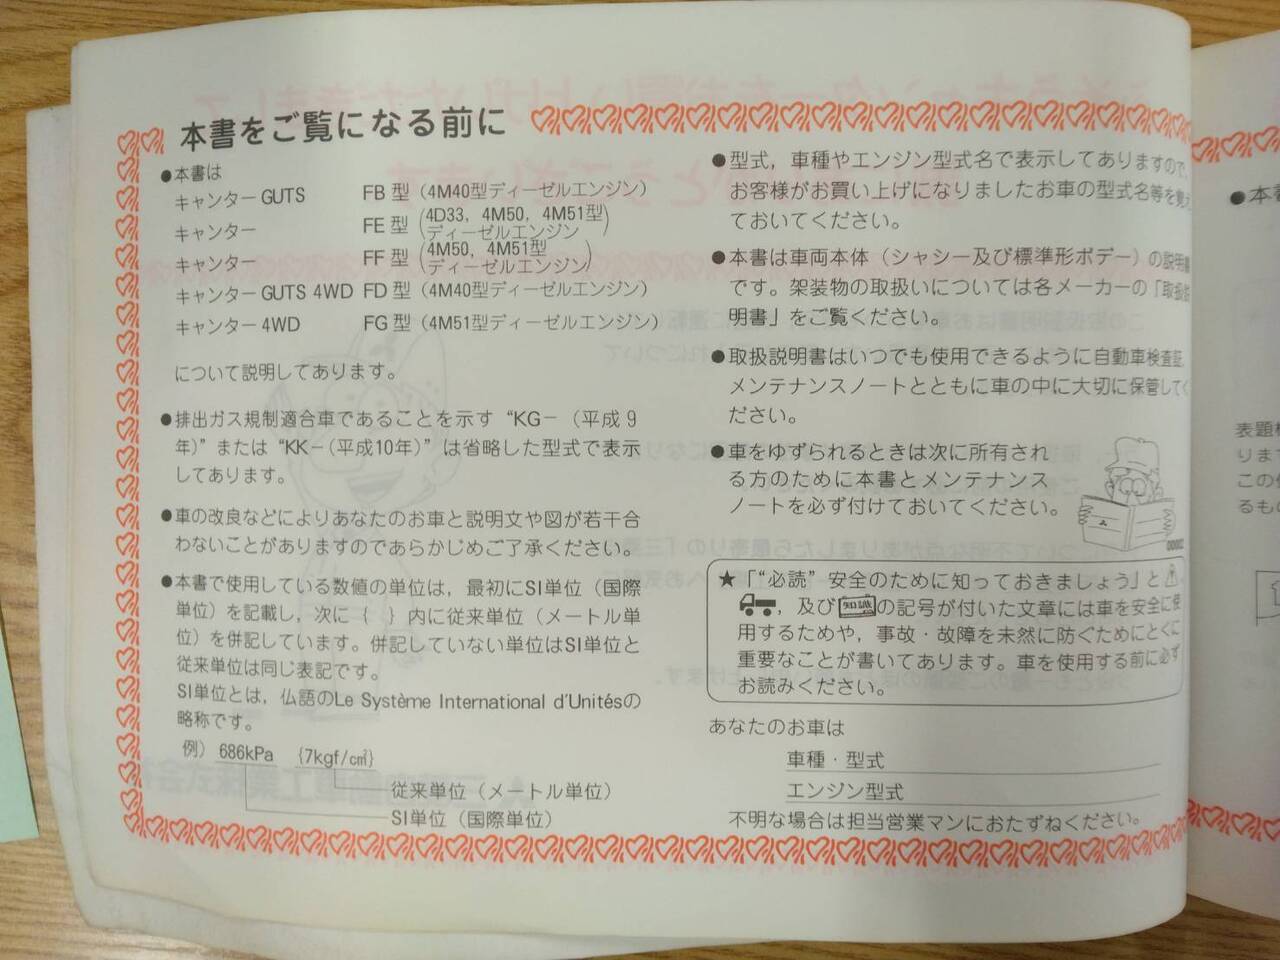 本書をご覧になる前に
●本書は
キャンターGUTS FB型(4M40型ディーゼルエンジン)
キャンター FE型(4D33, 4M50, 4M51型ディーゼルエンジン)
キャンター FF型(4M50, 4M51型ディーゼルエンジン)
キャンターGUTS 4WD FD型(4M40型ディーゼルエンジン)
キャンター4WD FG型(4M51型ディーゼルエンジン)
について説明してあります。
●排出ガス規制適合車であることを示す “KG-(平成9
年)”または“KK-(平成10年)”は省略した型式で表示
してあります。
●車の改良などによりあなたのお車と説明文や図が若干合
わないことがありますのであらかじめご了承ください。
●本書で使用している数値の単位は,最初にSI単位(国際
単位)を記載し,次に{ }内に従来単位(メートル単
位)を併記しています。併記していない単位はSI単位と
従来単位は同じ表記です。
SI単位とは,仏語のLe Système International d'Unitésの
略称です。
例) 686kPa {7kgf/c㎡}
従来単位(メートル単位)
SI単位(国際単位)
●型式,車種やエンジン型式名で表示してありますので,
お客様がお買い上げになりましたお車の型式名等を覚え
ておいてください。
●本書は車両本体(シャシー及び標準形ボデー)の説明
です。架装物の取扱いについては各メーカーの「取扱説
明書」をご覧ください。
●取扱説明書はいつでも使用できるように自動車検査証,
メンテナンスノートとともに車の中に大切に保管してく
ださい。
●車をゆずられるときは次に所有され
る方のために本書とメンテナンス
ノートを必ず付けておいてください。
00002
★「“必読”安全のために知っておきましょう」と⚠,
,及び知識の記号が付いた文章には車を安全に使
用するためや,事故・故障を未然に防ぐためにとくに
重要なことが書いてあります。車を使用する前に必ず
お読みください。
あなたのお車は
車種・型式
エンジン型式
不明な場合は担当営業マンにおたずねください。
●本書
表題
りま
この
るも